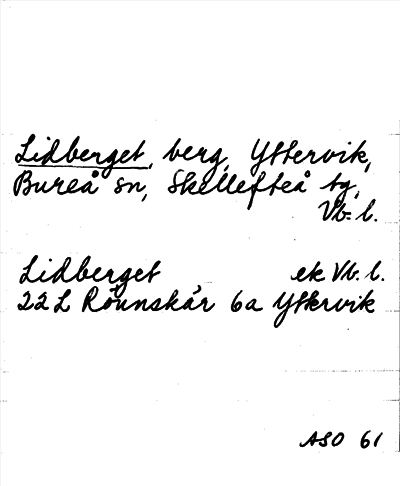 Lidberget, berg, Yttervik,
Bureå sn, Skellefteå tg,
Vb. l.
Lidberget ek Vb. l.
22 L Rönnskär 6a Yttervik
ASO 61